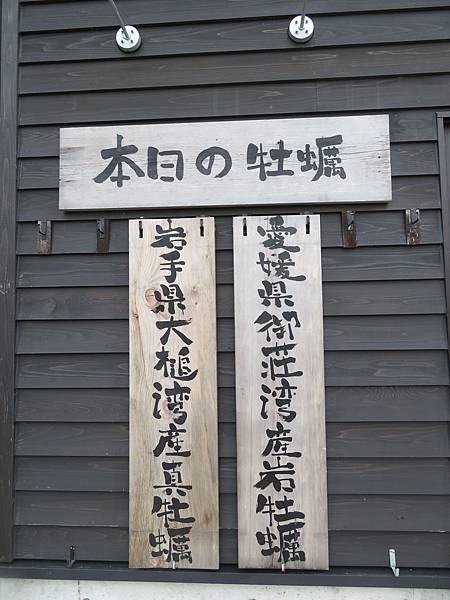 本日の牡蠣
愛媛県御荘湾産岩牡蠣
岩手県大槌湾産真牡蠣